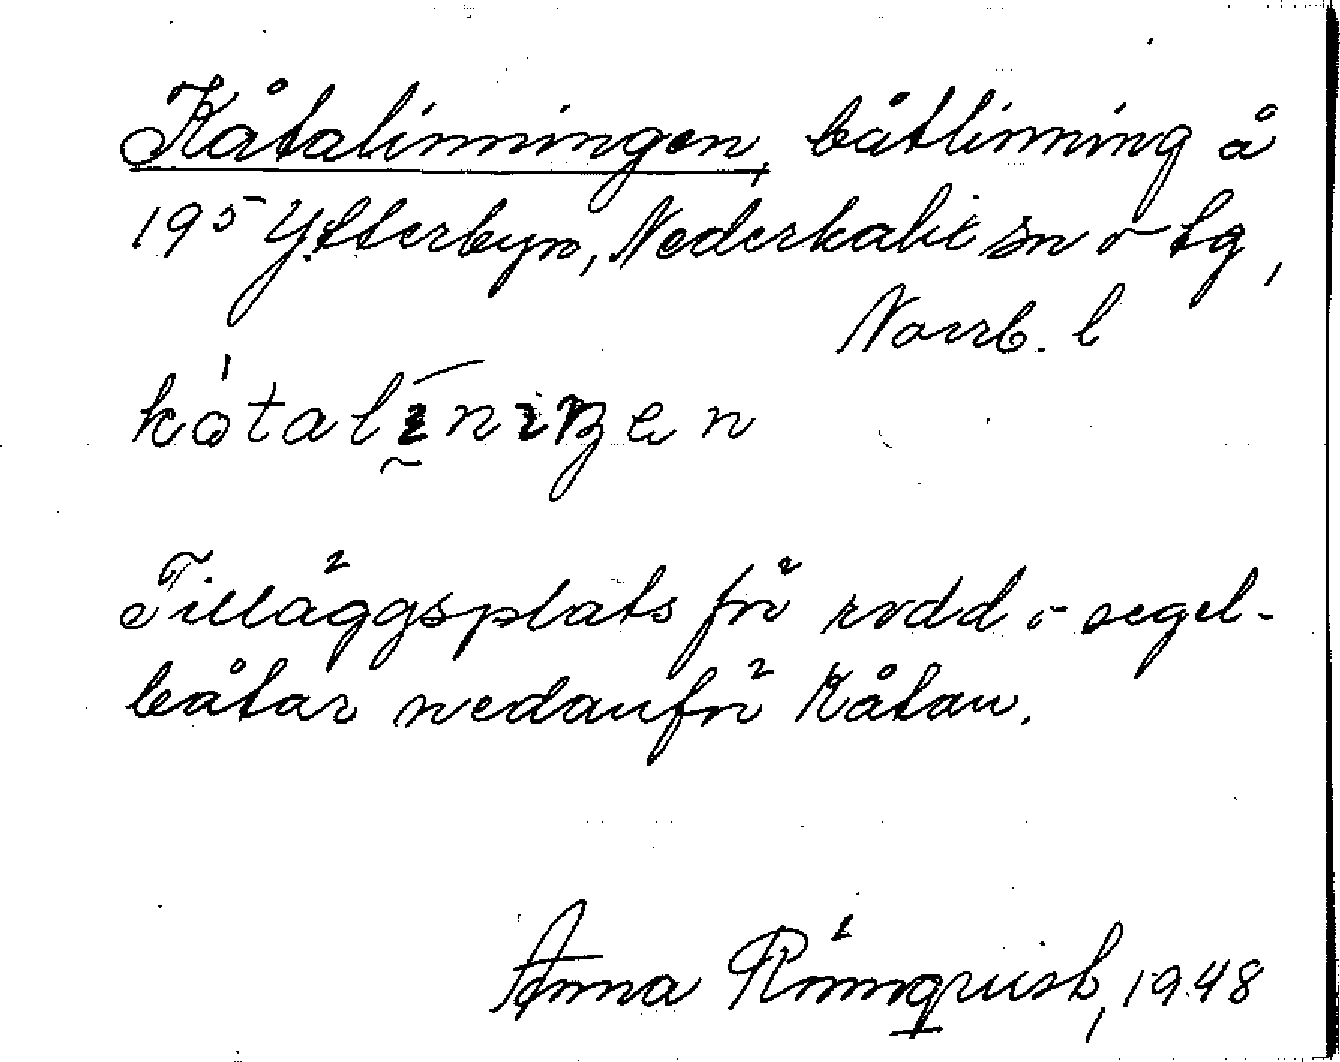 Kåtalinningen, båtlinning å
19⁵ Ytterbyn, Nederkalix sn o tg,
Norrb. l
Tilläggsplats för rodd o segel-
båtar nedanför Kåtan.
Anna Rönnqvist, 1948